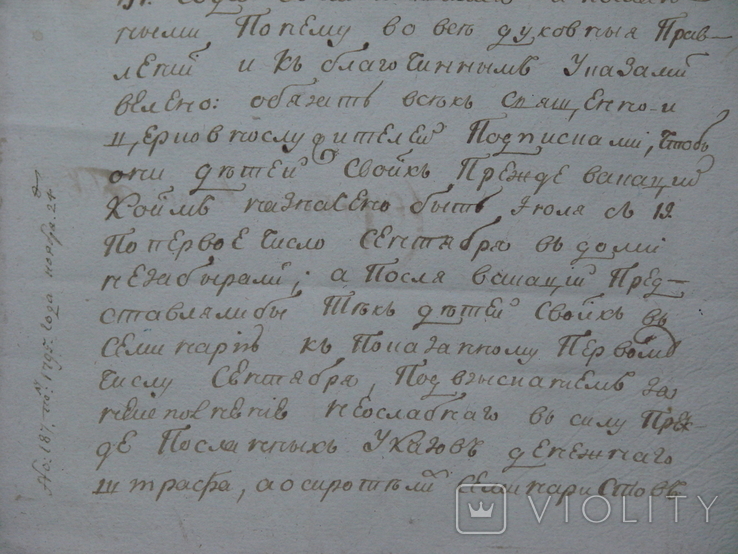 ными почему во всѣ духовныя прав-
лений и къ благочиннымъ указами
велено: обязать всѣхъ священно и
церковнослужителей подписками, чтобъ
они дѣтей своихъ прежде ваканций
коимъ назначено быть июля съ 12.
по первое число сентября въ домы
незабирали; а после ваканций пред-
ставлялибы тѣхъ дѣтей своихъ въ
семинарию къ показанному первому
числу сентября, подвзысканиемъ за
неисполнение неослабнаго въ силу преж-
де посланныхъ указовъ денежнаго
штрафа, а о сиротѣхъ семинаристовъ
No: 187. 1797. года ноября 24.
VIOLITY